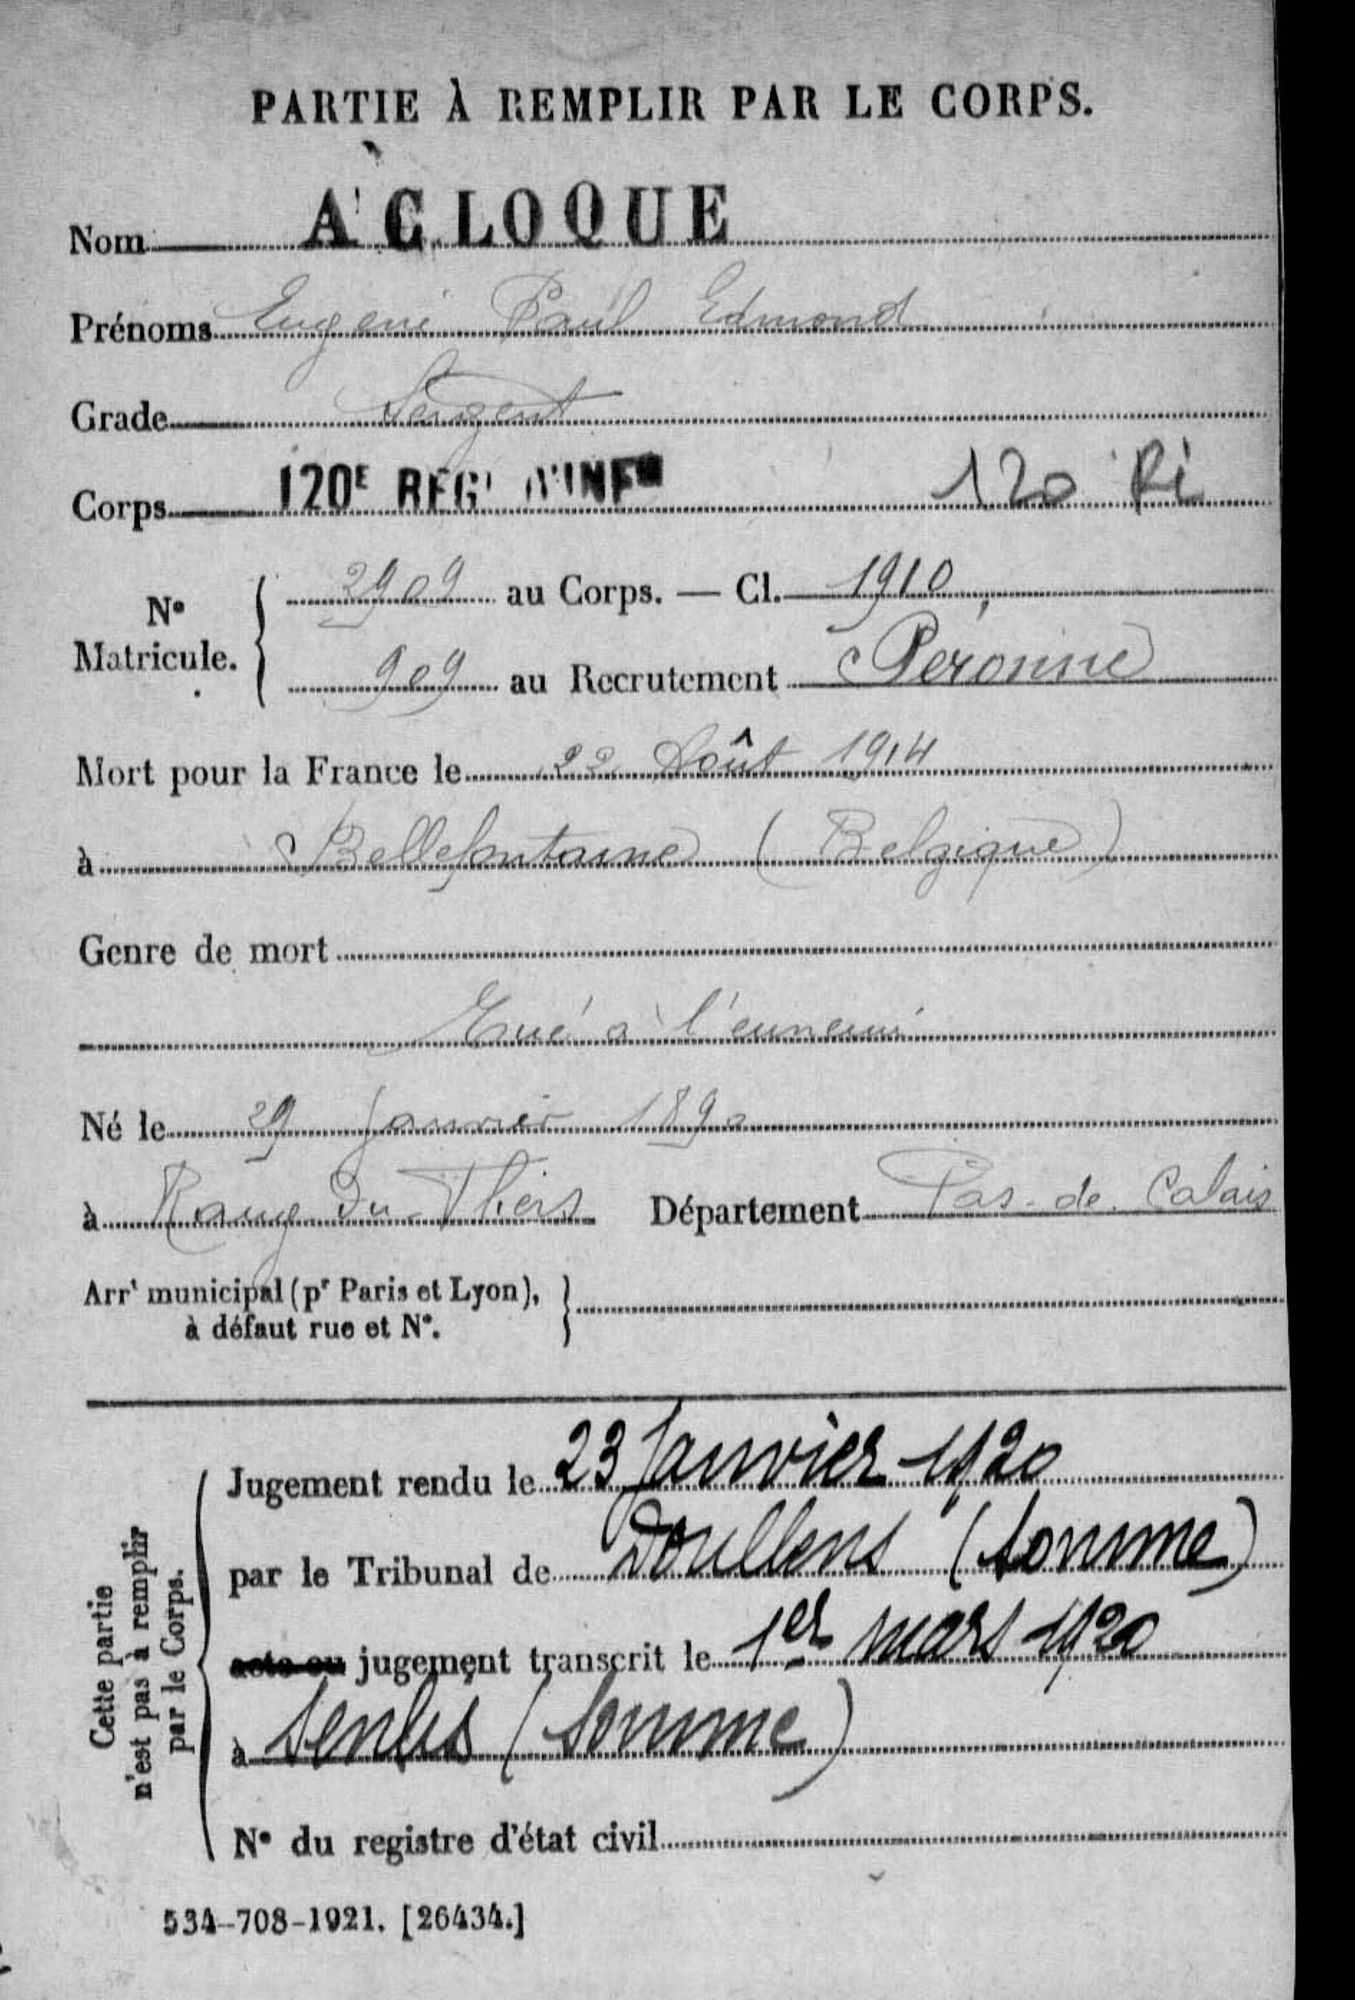 PARTIE À REMPLIR PAR LE CORPS.
Nom ACLOQUE
Prénoms Eugène Paul Edmond
Grade Sergent
Corps 120E REGt D'INFie 120 Ri
No Matricule. { 2909 au Corps. — Cl. 1910
909 au Recrutement Péronne
Mort pour la France le 22 Août 1914
à Bellefontaine (Belgique)
Genre de mort
Tué à l'ennemi
Né le 29 Janvier 1890
à Rang du Fliers Département Pas-de-Calais
Arrt municipal (pr Paris et Lyon), }
à défaut rue et No.
Cette partie
n'est pas à remplir
par le Corps.
Jugement rendu le 23 Janvier 1920
par le Tribunal de Doullens (Somme)
acte ou jugement transcrit le 1er mars 1920
à Senlis (Somme)
No du registre d'état civil
534-708-1921. [26434.]